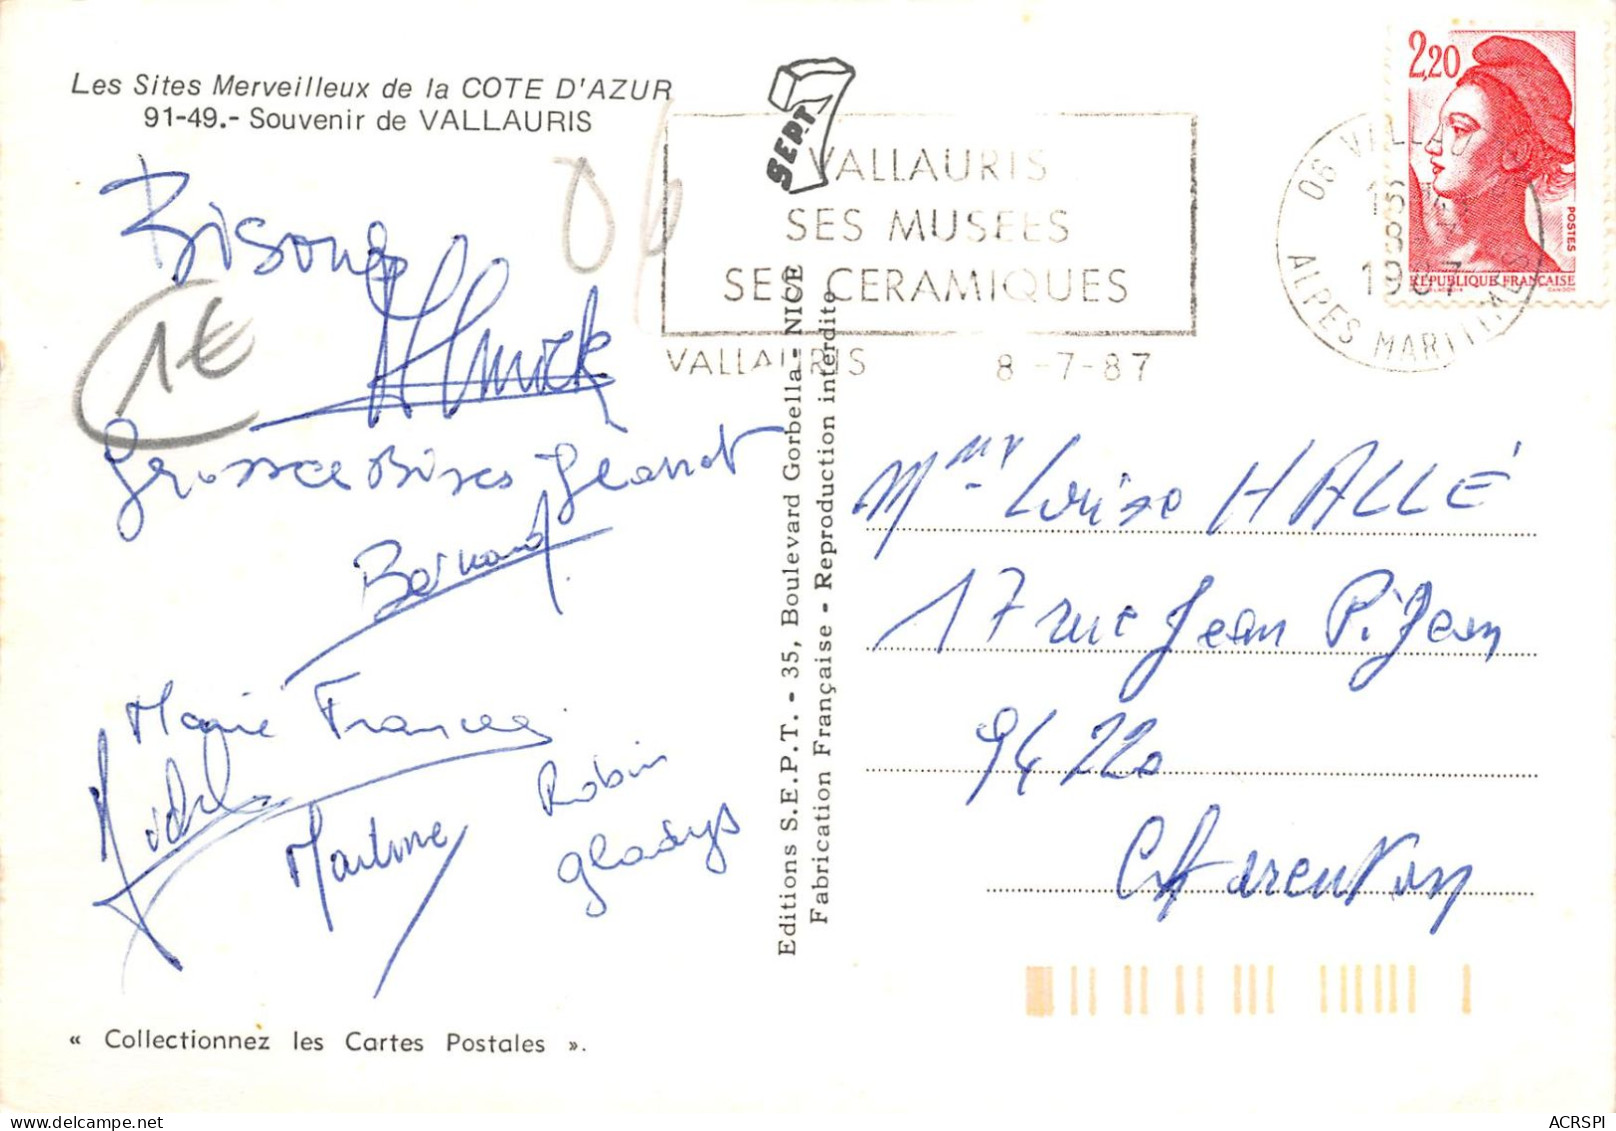 Les Sites Merveilleux de la COTE D'AZUR
91-49.- Souvenir de VALLAURIS
Bisous
1€
06
Grosses Bises Jeannot
Bernard
Marie France
Michel
Martine
Robin
Gladys
« Collectionnez les Cartes Postales ».
SEPT
Editions S.E.P.T. - 35, Boulevard Gorbella - NICE
Fabrication Française - Reproduction interdite
VALLAURIS
SES MUSEES
SES CERAMIQUES
VALLAURIS 8-7-87
06 VALLAURIS
8-7
1987
ALPES MARITIMES
2,20
POSTES
REPUBLIQUE FRANÇAISE
Mme Louise HALLÉ
17 rue Jean Pigeon
94220
Charenton
ACRSPI